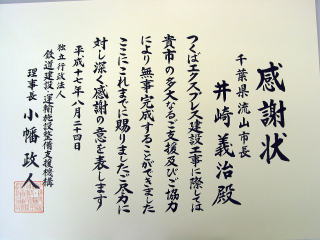 感謝状
千葉県流山市長
井崎義治殿
つくばエクスプレス建設工事に際しては
貴市の多大なるご支援及びご協力
により無事完成することができました
ここにこれまでに賜りましたご尽力に
対し深く感謝の意を表します
平成十七年八月二十四日
独立行政法人
鉄道建設・運輸施設整備支援機構
理事長 小幡政人